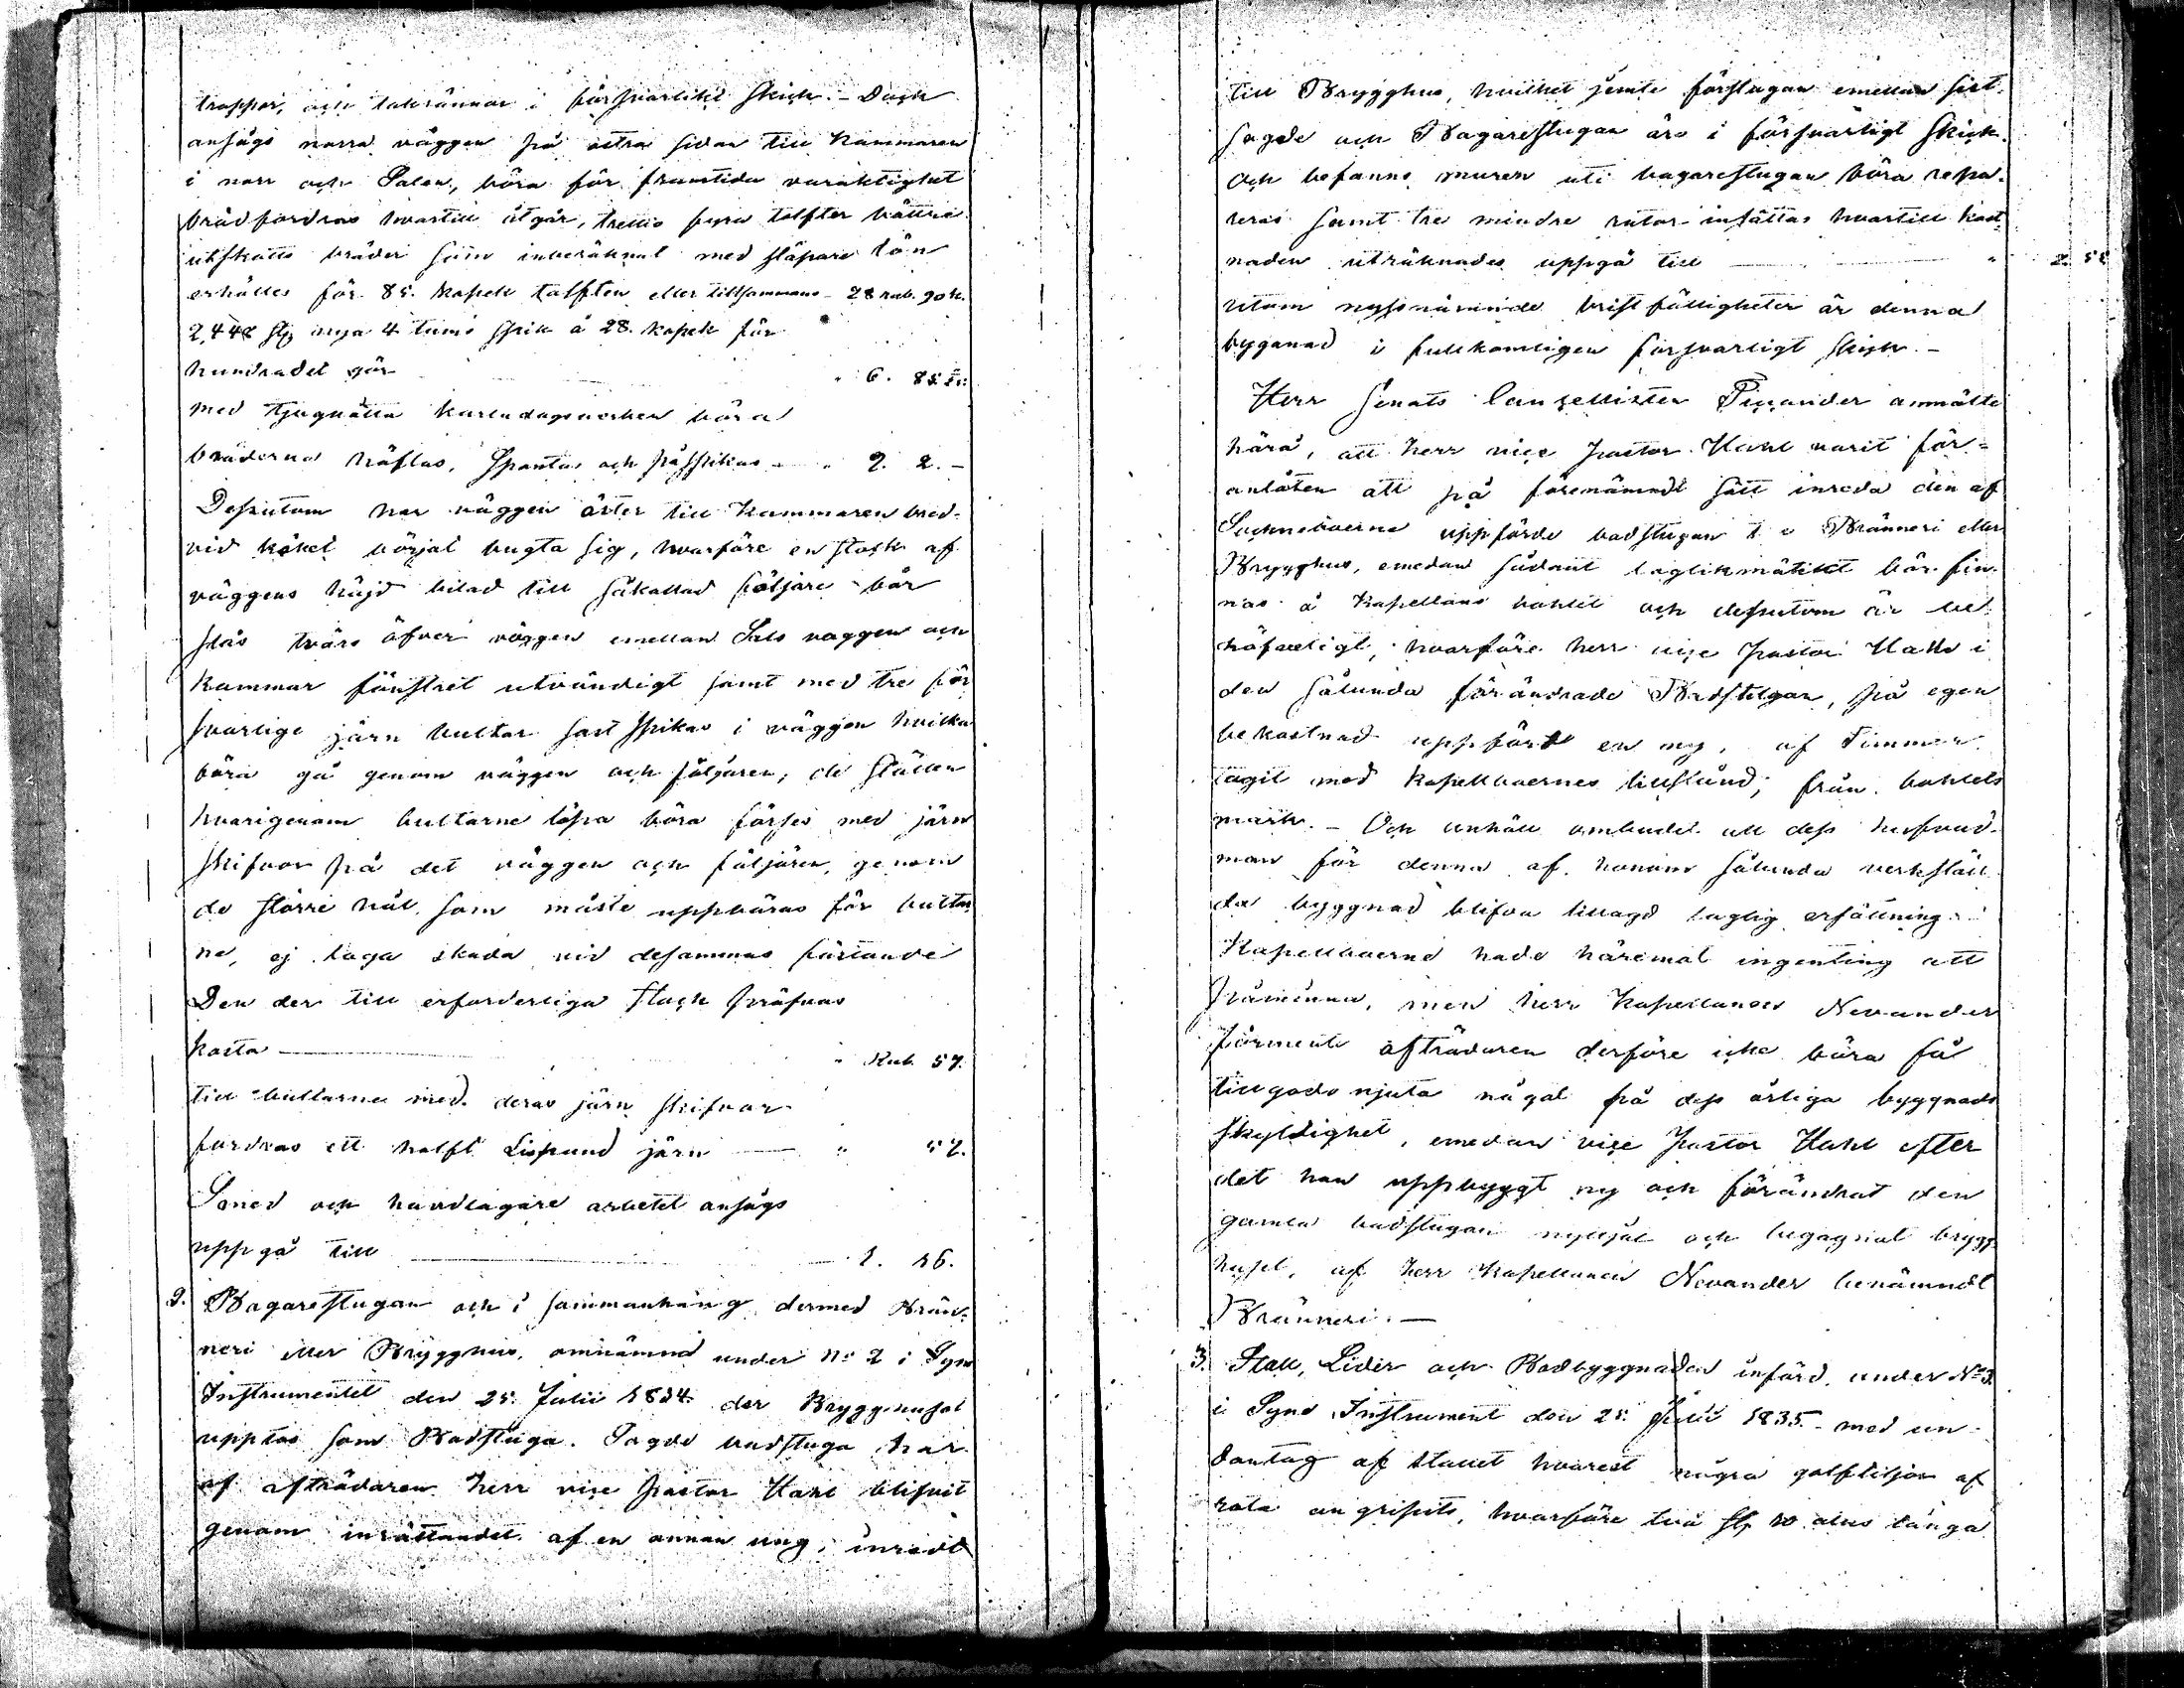 trappor, och takrännor i försvarlikt skick. – Dock
ansågs norra väggen på östra sidan till Kammaren
i norr och Salen, böra för framtida varaktighet
brädfordras hvartill åtgår, trettio fyra tolfter bättre
utskotts bräder som inberäknat med släpare lön
erhålles för 85. kopek tolften eller tillsammans – 28 rub. 90 k.
2,448 st. nya 4 tums spik á 28. kopek för
hundradet gör " 6. 85
med tjuguåtta karladagsverken böra
bräderna häflas, Spontas och påspikas – " 2. 2. –
Dessutom har väggen öster till Kammaren bred-
vid köket börjat bugta sig, hvarföre en stock af
väggens höjd bilad till såkallad följare bör
slås tvärs öfver väggen emellan Sals väggen och
Kammar fönstret utvändigt samt med tre för
svarlige järn bultar fast spikas i väggen hvilka
böra gå genom väggen och följaren, de ställen
hvarigenom bultarne löpa böra förses med järn
skifvor på det väggen och följaren, genom
de större hål som måste uppbäras för bultar
ne, ej taga skada vid desammas
Den der till erforderliga stock pröfvas
kosta – " Rub. 57.
till bultarne med deras järn skifvor
fordras ett halft Lispund järn – " 57.
Smed och handtagare arbetet ansågs
uppgå till – 1. 16.
2. Bagarestugan och i sammanhang dermed Brän-
neri eller Brygghus, omnämnd under No 2 i Syn
Instrumentet den 25. Julii 1834. der Brygghuset
upptas som Badstuga. Sagde badstuga har
af afträdaren herr vice pastor Hahl blifvit
genom inrättandet af en annan ung, inredt
till Brygghus, hvilket jemte förstugan emellan sist-
sagde och Bagarestugan äro i försvarligt skick.
Och befanns muren uti bagarestugan böra repa-
reras samt tre mindre rutor insättas hvartill kost-
naden uträknades uppgå till – " 2. 58
Utom nyssnämnde bristfälligheter är denna
byganad i fullkomligen försvarligt skick. –
Herr Senats Cancellisten Pinander anmälte
härå, att herr vice pastor Hahl varit för-
anlåten att på förenämndt sätt inreda den af
Socknеboerne uppförde badstugan t e Bränneri eller
Brygghus, emedan sådant laglikmätikt bör fin-
nas å Kapellans bohlet och dessutom är be-
höfveligt, hvarföre herr vice pastor Hahl i
den sålunda förändrade Badstugan, på egen
bekostnad uppfört en ny, af Timmer
tagit med Kapellboernes tillstånd, från bohlets
mark. – Och anhöll ombudet att dess hufvud-
man för denna af honom sålunda verkstäl-
da byggnad blifva tillagd laglig ersättning.
Kapellboerne hade häremot ingenting att
påminna, men herr Kapellanen Nevander
förmente afträdaren derföre icke böra få
tillgodo njuta något på dess årliga byggnads
skyldighet, emedan vice pastor Hahl efter
det han uppbyggt ny och förändrat den
gamla badstugan nyttjat och begagnat brygg-
huset, af herr Kapellanen Nevander benämndt
Bränneri. –
3. Stall, Lider och Bodbyggnaden införd under No 3.
i Syne Instrument den 25. Julii 1835. med un-
dantag af stallet hvarest några golftiljor af
röta angripits, hvarföre två st. 10 alns långa